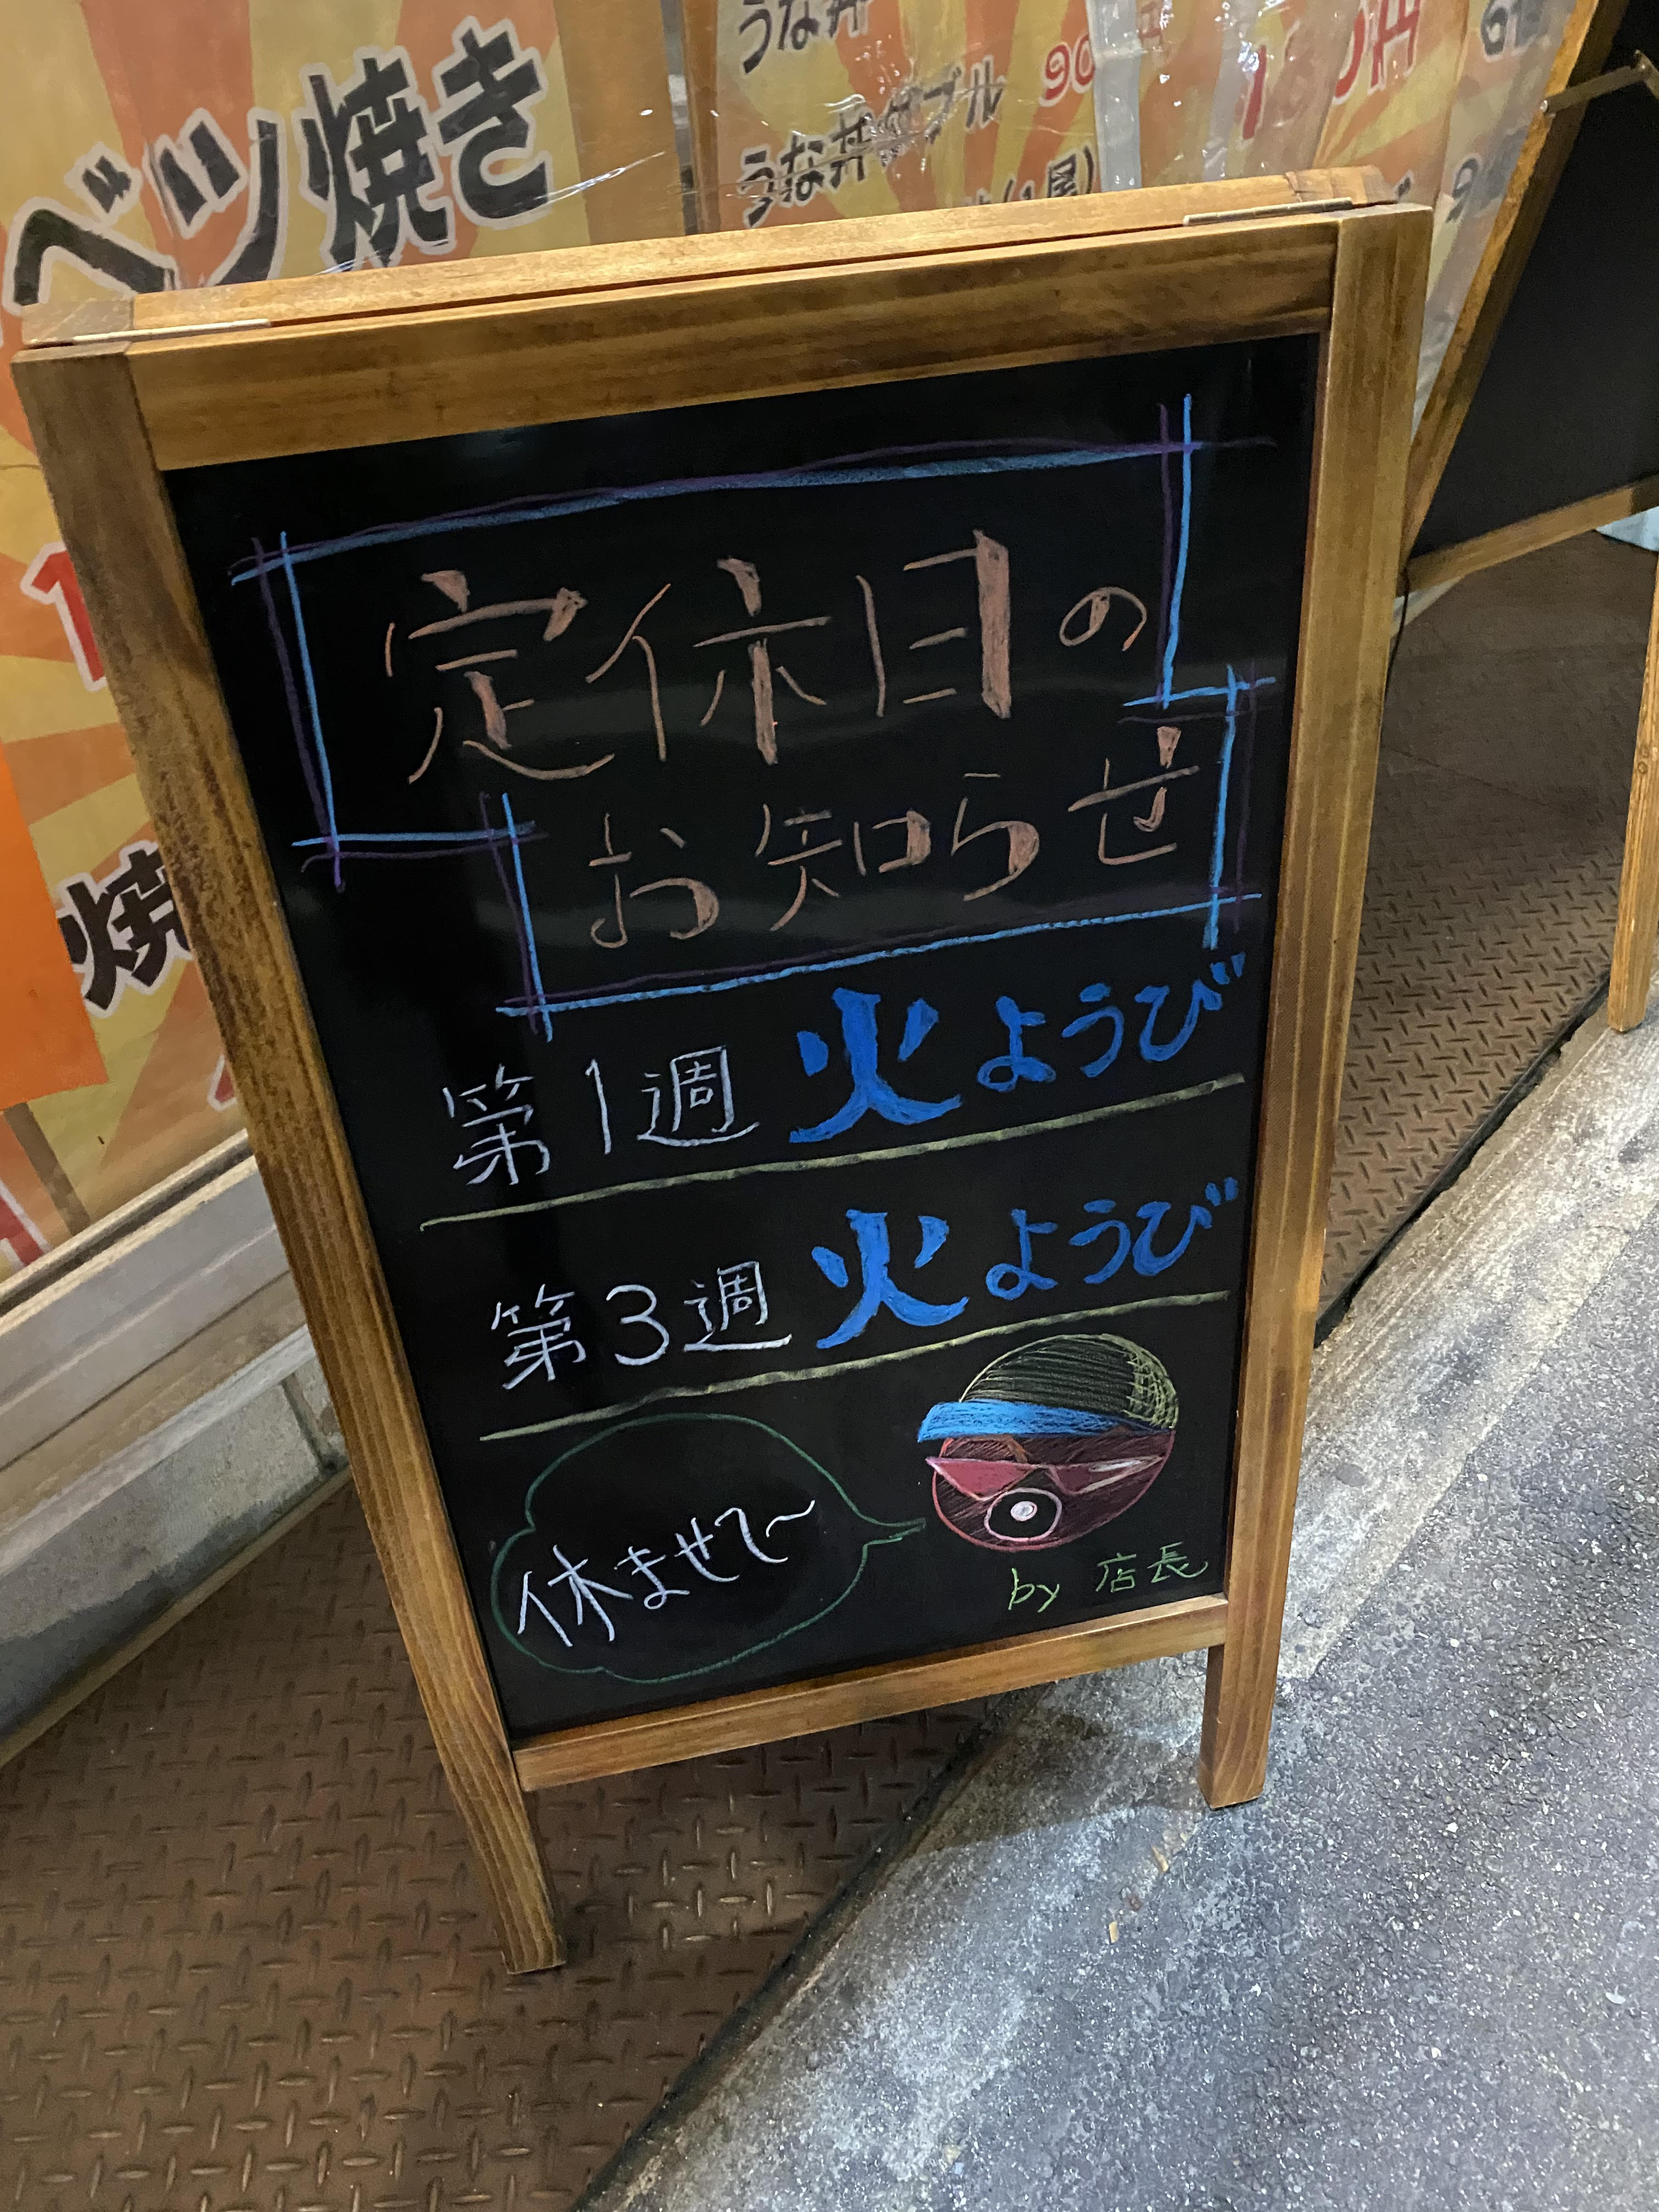 ベツ焼き
うな丼
うな丼ダブル
焼
定休日の
お知らせ
第1週 火ようび
第3週 火ようび
休ませて〜
by 店長